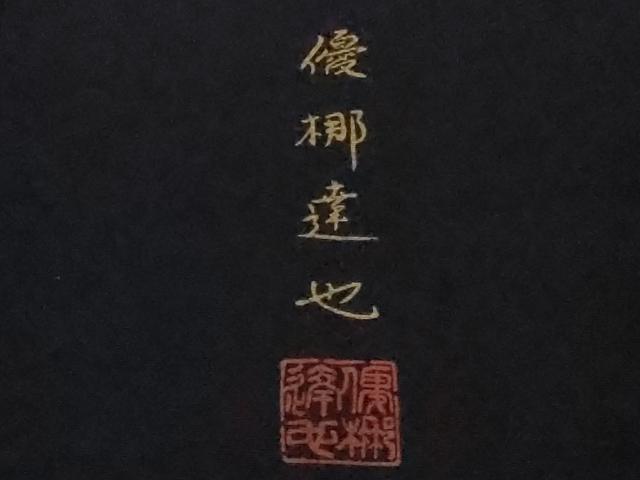 優梛達也
優梛
達也